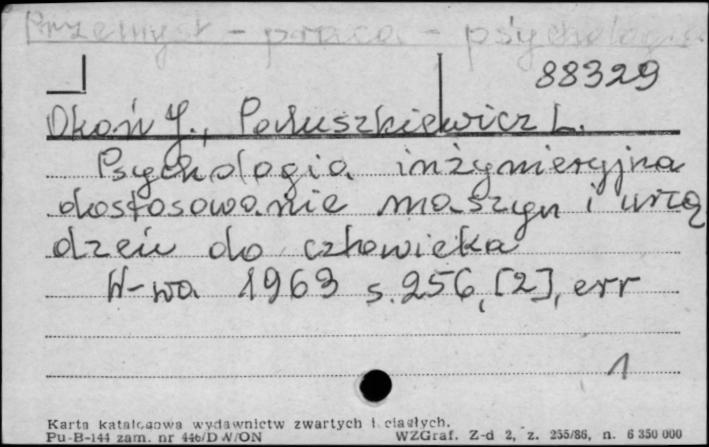 Przemysł - praca - psychologia
88329
Okoń J., Paluszkiewicz L.
Psychologia inżynieryjna
dostosowanie maszyn i urzą
dzeń do człowieka
W-wa 1963 s. 256, [2], err
1
Karta katalogowa wydawnictw zwartych i ciągłych.
Pu-B-144 zam. nr 446/DW/ON WZGraf. Z-d 2, z. 255/86, n. 6 350 000